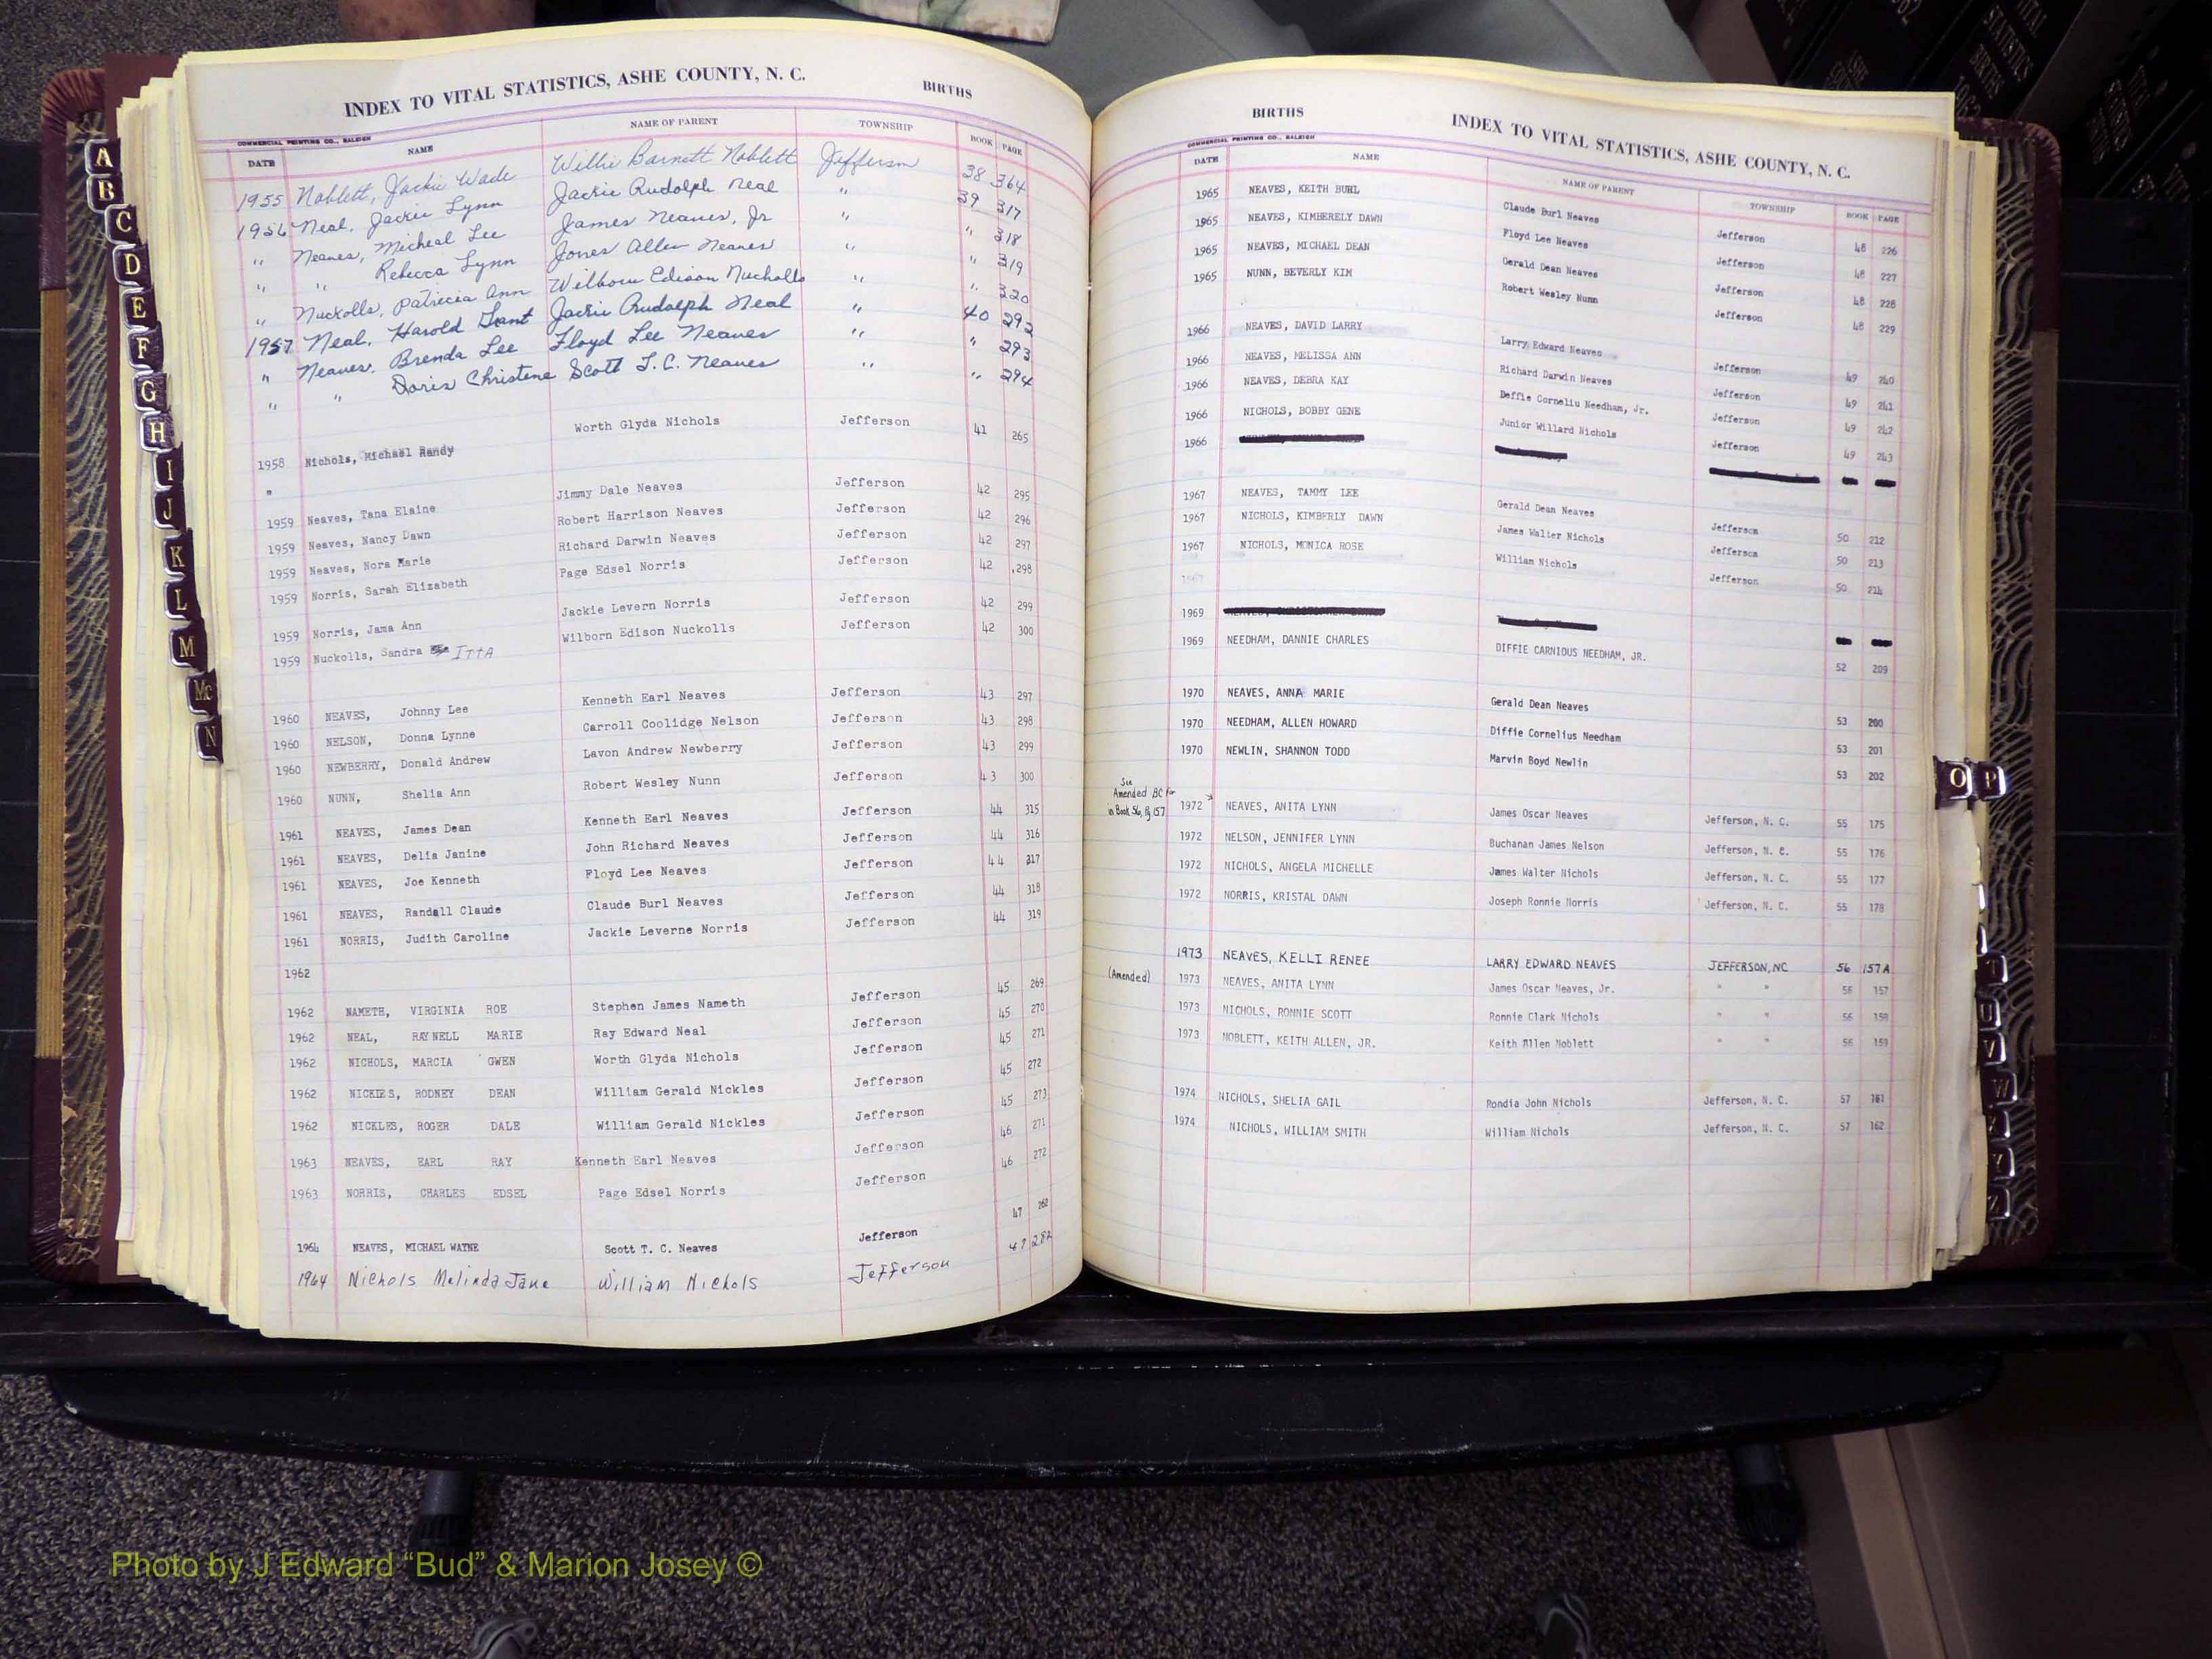 INDEX TO VITAL STATISTICS, ASHE COUNTY, N. C. BIRTHS
COMMERCIAL PRINTING CO., RALEIGH
DATE NAME NAME OF PARENT TOWNSHIP BOOK PAGE
1955 Noblett, Jackie Wade Willie Barnett Noblett Jefferson 38 364
1956 Neal, Jackie Lynn Jackie Rudolph Neal " 39 317
" Neaves, Micheal Lee James Neaves, Jr " " 318
" " Rebecca Lynn Jones Allen Neaves " " 319
" Nuckolls, Patricia Ann Wilborn Edison Nuckolls " " 320
1957 Neal, Harold Jackie Rudolph Neal " 40 292
" Neaves, Brenda Lee Floyd Lee Neaves " " 293
" " Doris Christene Scott T. C. Neaves " " 294
1958 Nichols, Michael Randy Worth Glyda Nichols Jefferson 41 265
"
1959 Neaves, Tana Elaine Jimmy Dale Neaves Jefferson 42 295
1959 Neaves, Nancy Dawn Robert Harrison Neaves Jefferson 42 296
1959 Neaves, Nora Marie Richard Darwin Neaves Jefferson 42 297
1959 Norris, Sarah Elizabeth Page Edsel Norris Jefferson 42 298
1959 Norris, Jama Ann Jackie Levern Norris Jefferson 42 299
1959 Nuckolls, Sandra ITTA Wilborn Edison Nuckolls Jefferson 42 300
1960 NEAVES, Johnny Lee Kenneth Earl Neaves Jefferson 43 297
1960 NELSON, Donna Lynne Carroll Coolidge Nelson Jefferson 43 298
1960 NEWBERRY, Donald Andrew Lavon Andrew Newberry Jefferson 43 299
1960 NUNN, Shelia Ann Robert Wesley Nunn Jefferson 43 300
1961 NEAVES, James Dean Kenneth Earl Neaves Jefferson 44 315
1961 NEAVES, Delia Janine John Richard Neaves Jefferson 44 316
1961 NEAVES, Joe Kenneth Floyd Lee Neaves Jefferson 44 317
1961 NEAVES, Randall Claude Claude Burl Neaves Jefferson 44 318
1961 NORRIS, Judith Caroline Jackie Leverne Norris Jefferson 44 319
1962
1962 NAMETH, VIRGINIA ROE Stephen James Nameth Jefferson 45 269
1962 NEAL, RAYNELL MARIE Ray Edward Neal Jefferson 45 270
1962 NICHOLS, MARCIA GWEN Worth Glyda Nichols Jefferson 45 271
1962 NICKLES, RODNEY DEAN William Gerald Nickles Jefferson 45 272
1962 NICKLES, ROGER DALE William Gerald Nickles Jefferson 45 273
1963 NEAVES, EARL RAY Kenneth Earl Neaves Jefferson 46 271
1963 NORRIS, CHARLES EDSEL Page Edsel Norris Jefferson 46 272
1964 NEAVES, MICHAEL WAYNE Scott T. C. Neaves Jefferson 47
1964 Nichols Melinda Jane William Nichols Jefferson 47 282
A
B
C
D
E
F
G
H
I
J
K
L
M
Mc
N
BIRTHS INDEX TO VITAL STATISTICS, ASHE COUNTY, N. C.
COMMERCIAL PRINTING CO., RALEIGH
DATE NAME NAME OF PARENT TOWNSHIP BOOK PAGE
1965 NEAVES, KEITH BURL Claude Burl Neaves Jefferson 48 226
1965 NEAVES, KIMBERELY DAWN Floyd Lee Neaves Jefferson 48 227
1965 NEAVES, MICHAEL DEAN Gerald Dean Neaves Jefferson 48 228
1965 NUNN, BEVERLY KIM Robert Wesley Nunn Jefferson 48 229
1966 NEAVES, DAVID LARRY Larry Edward Neaves Jefferson 49 240
1966 NEAVES, MELISSA ANN Richard Darwin Neaves Jefferson 49 241
1966 NEAVES, DEBRA KAY Deffie Corneliu Needham, Jr. Jefferson 49 242
1966 NICHOLS, BOBBY GENE Junior Willard Nichols Jefferson 49 243
1966
1967 NEAVES, TAMMY LEE Gerald Dean Neaves Jefferson 50 212
1967 NICHOLS, KIMBERLY DAWN James Walter Nichols Jefferson 50 213
1967 NICHOLS, MONICA ROSE William Nichols Jefferson 50 214
1967
1969
1969 NEEDHAM, DANNIE CHARLES DIFFIE CARNIOUS NEEDHAM, JR. 52 209
1970 NEAVES, ANNA MARIE Gerald Dean Neaves 53 200
1970 NEEDHAM, ALLEN HOWARD Diffie Cornelius Needham 53 201
1970 NEWLIN, SHANNON TODD Marvin Boyd Newlin 53 202
See
Amended BC for
in Book 56, Pg 157
1972 NEAVES, ANITA LYNN James Oscar Neaves Jefferson, N. C. 55 175
1972 NELSON, JENNIFER LYNN Buchanan James Nelson Jefferson, N. C. 55 176
1972 NICHOLS, ANGELA MICHELLE James Walter Nichols Jefferson, N. C. 55 177
1972 NORRIS, KRISTAL DAWN Joseph Ronnie Norris Jefferson, N. C. 55 178
1973 NEAVES, KELLI RENEE LARRY EDWARD NEAVES JEFFERSON, NC 56 157A
(Amended) 1973 NEAVES, ANITA LYNN James Oscar Neaves, Jr. " " 56 157
1973 NICHOLS, RONNIE SCOTT Ronnie Clark Nichols " " 56 158
1973 NOBLETT, KEITH ALLEN, JR. Keith Allen Noblett " " 56 159
1974 NICHOLS, SHELIA GAIL Rondia John Nichols Jefferson, N. C. 57 161
1974 NICHOLS, WILLIAM SMITH William Nichols Jefferson, N. C. 57 162
O P
T
U
V
W
Y
Z
VITAL
STATISTICS
BIRTHS
ASHE
Photo by J Edward “Bud” & Marion Josey ©